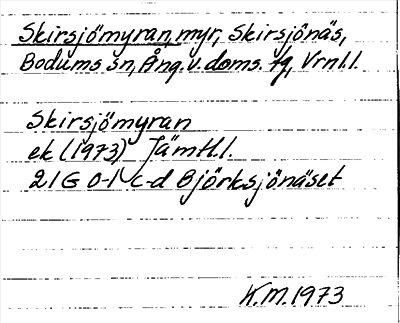 Skirsjömyran, myr, Skirsjönäs,
Bodums sn, Ång. v. doms. fg, Vrnl.l.
Skirsjömyran
ek (1973) Jämtl.l.
21G 0-1 c-d Björksjönäset
K.M. 1973